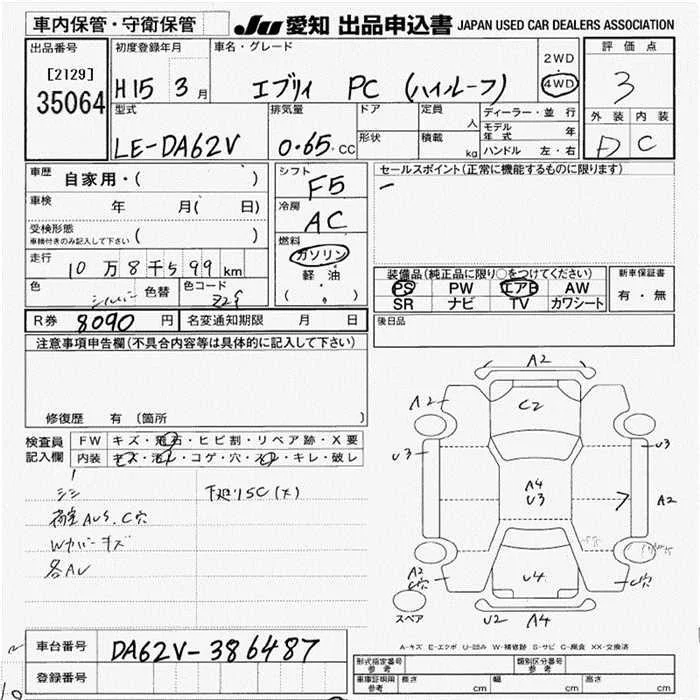 車内保管・守衛保管
JU 愛知 出品申込書 JAPAN USED CAR DEALERS ASSOCIATION
出品番号
[2129]
35064
初度登録年月
H15 3月
車名・グレード
エブリィ PC (ハイルーフ)
2WD
4WD
評価点
3
外装 内装
D C
型式
LE-DA62V
排気量
0.65 CC
ドア
形状
定員
人
積載
kg
ディーラー・並行
モデル年式 年
ハンドル 左・右
車歴 自家用・( )
車検 年 月( 日)
受検形態
車検付きのみ記入して下さい ( )
走行
10万8千599km
色
シルバー 色替
色コード
Z2S
シフト
F5
冷房
AC
燃料
ガソリン
軽・油
( , )
セールスポイント(正常に機能するものに限ります)
ー
装備品(純正品に限り○をつけてください)
PS PW エアB AW
SR ナビ TV カワシート
新車保証書
有・無
R券 8090円
名変通知期限 月 日
後日品
注意事項申告欄(不具合内容等は具体的に記入して下さい)
修復歴 有 〔箇所 〕
検査員記入欄
FW キズ・飛石・ヒビ割・リペア跡・X要
内装 キズ・汚れ・コゲ・穴・スレ・キレ・破レ
下廻りSC(大)
荷室AUS.C穴
Wカバーキズ
各AU
A2
A2
C2
U3
U3
A4
U3
A2
A2
C穴
U4
C穴
U2 A4
スペア
A-キズ E-エクボ U-凹み W-補修跡 S-サビ C-腐食 XX-交換済
車台番号
DA62V-386487
登録番号
形式指定番号
参考
類別区分番号
参考
車庫証明用
参考
長さ cm
幅 cm
高さ cm